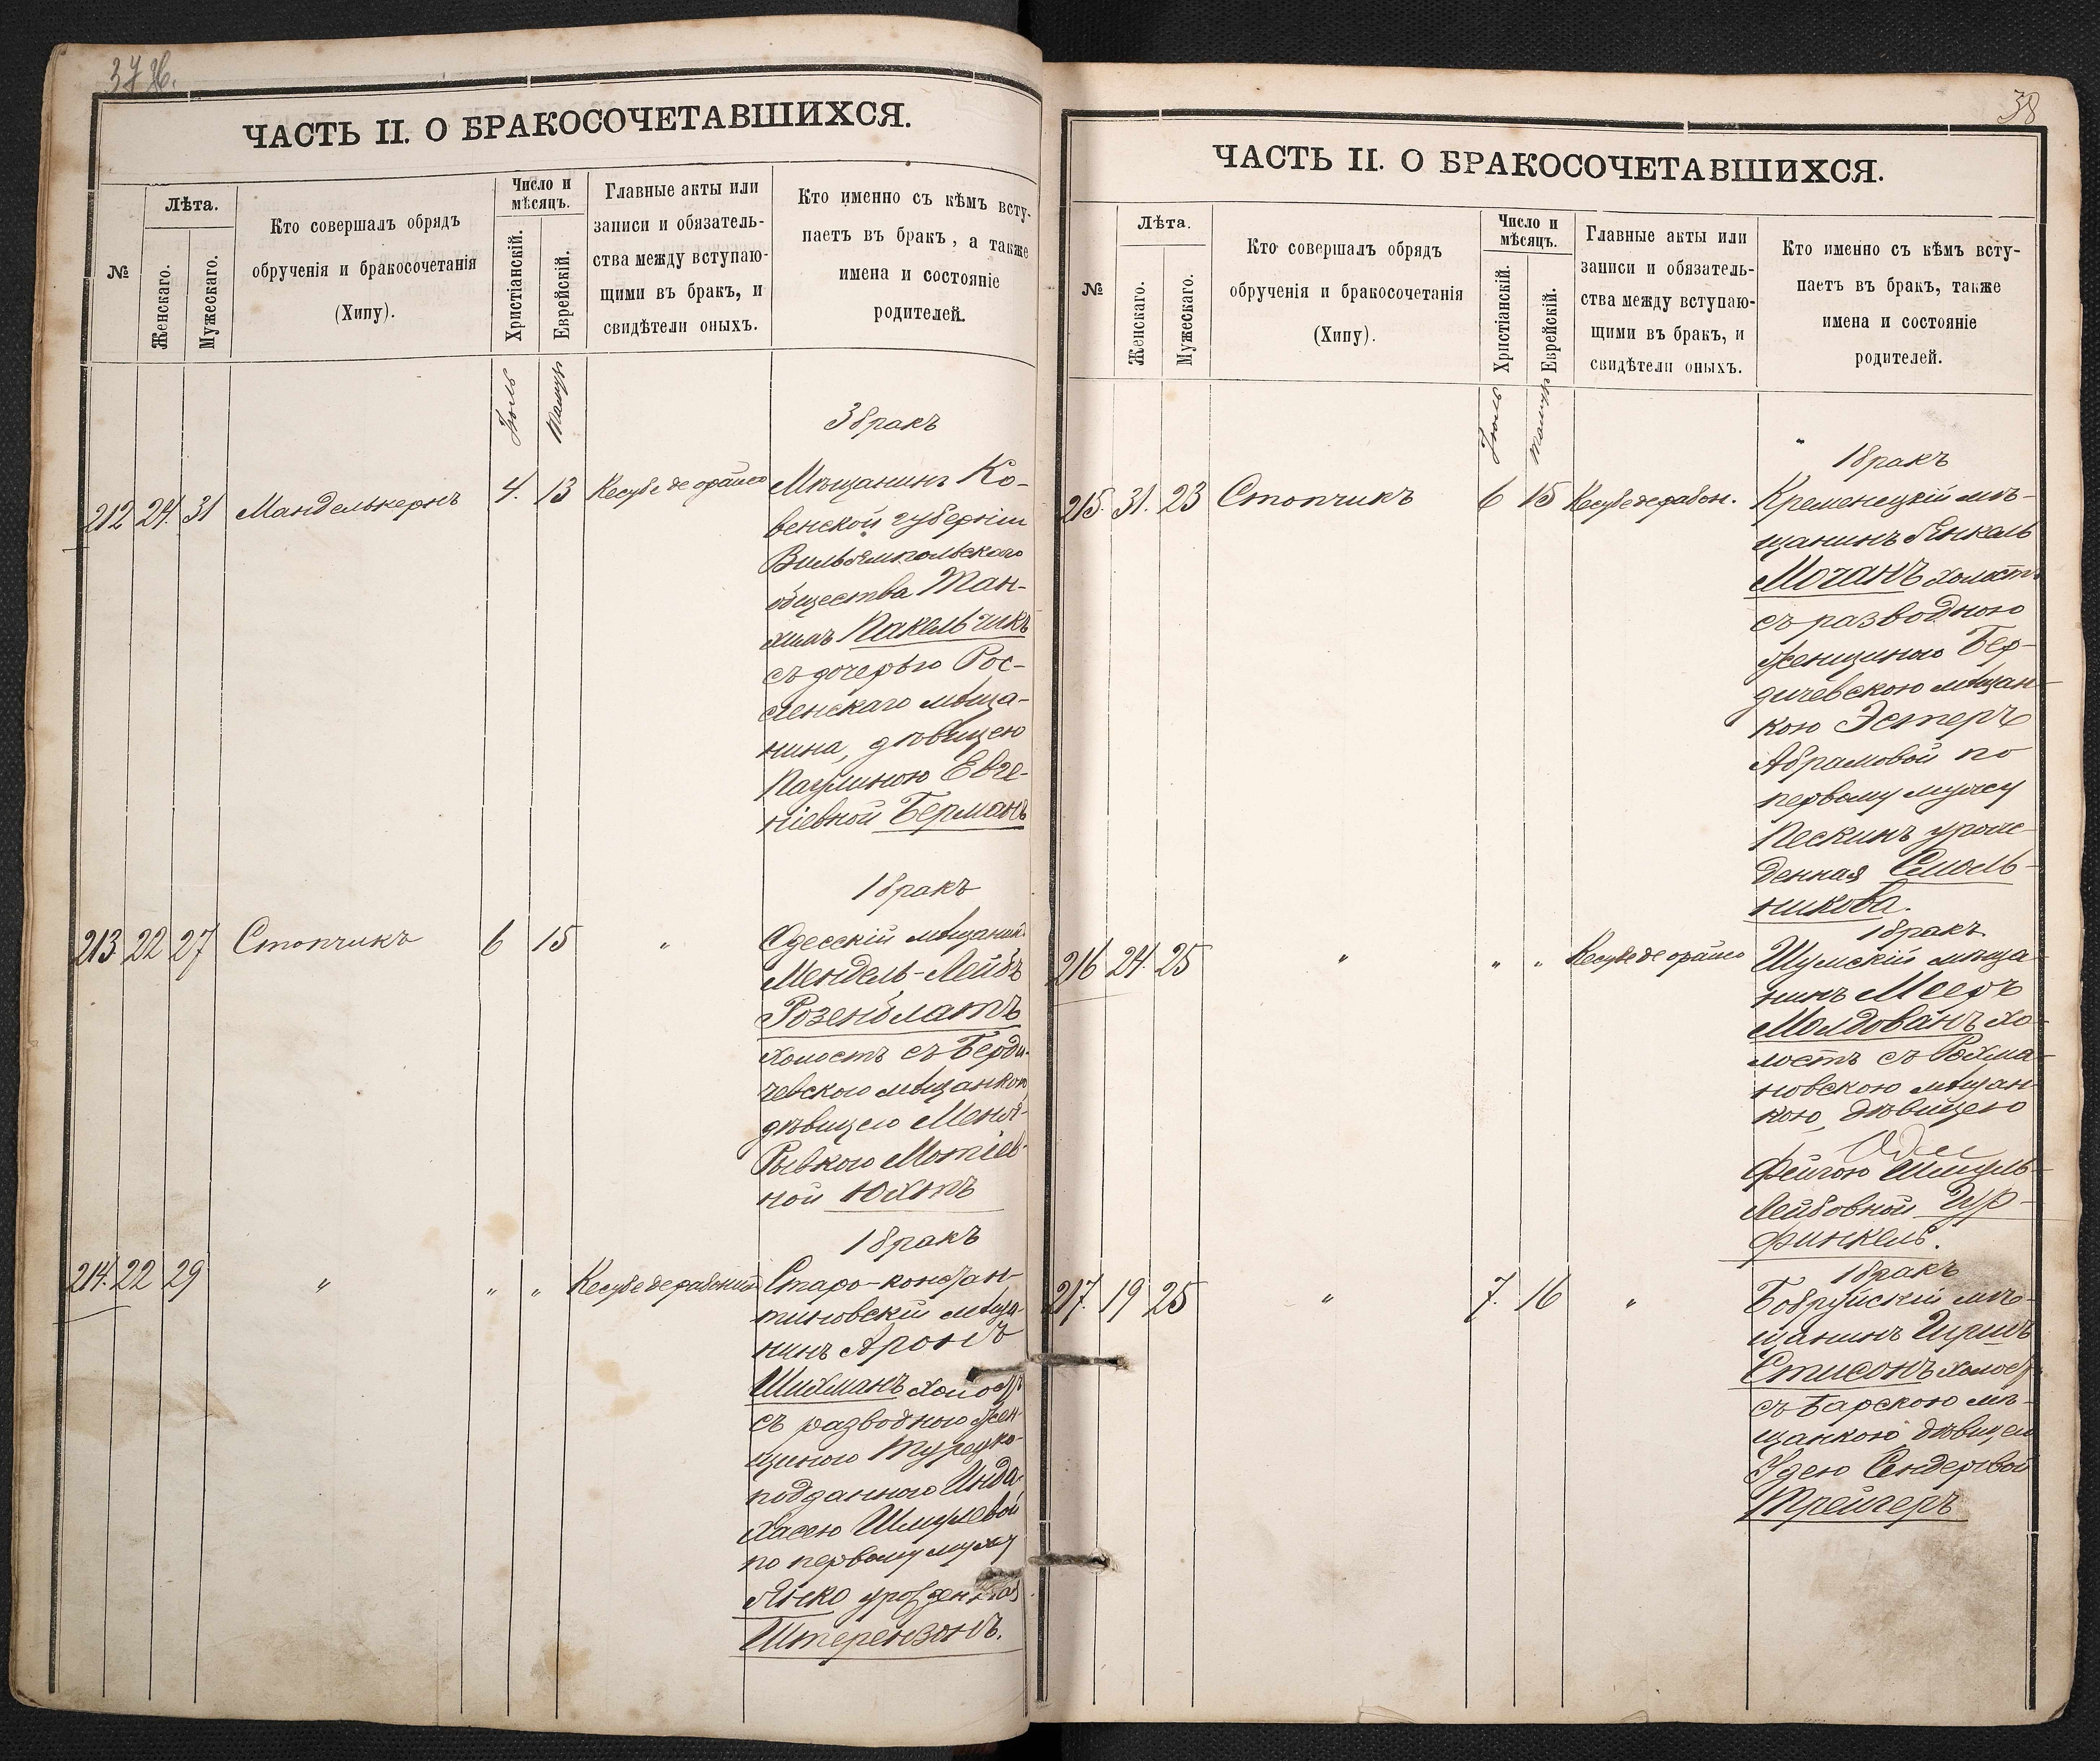 37 об.
ЧАСТЬ II. О БРАКОСОЧЕТАВШИХСЯ.
№
Лѣта.
Женскаго.
Мужескаго.
Кто совершалъ обрядъ
обрученія и бракосочетанія
(Хипу).
Число и
мѣсяцъ.
Христіанскій.
Еврейскій.
Главные акты или
записи и обязатель-
ства между вступаю-
щими въ бракъ, и
свидѣтели оныхъ.
Кто именно съ кѣмъ всту-
паетъ въ бракъ, а также
имена и состояніе
родителей.
Іюль
Тамузъ
3 бракъ
212 24. 31 Манделькернъ 4. 13 Кесубе де орайсо Мѣщанинъ Ко-
венской губерніи
Вильямпольскаго
общества Тан-
химъ Пакельчикъ
съ дочерью Рос-
сіенскаго мѣща-
нина, дѣвицею
Паулиною Евге-
ніевной Берманъ
1 бракъ
213 22 27 Стопчикъ 6 15 " Одесскій мѣщанинъ
Мендель-Лейбъ
Розенблатъ
холостъ съ Берди-
чевскою мѣщанкою
дѣвицею Меня-
Рывкою Мотіев-
ной Юхтъ
1 бракъ
214. 22 29 " " " Кесубе дерабонинъ Старо-констан-
тиновскій мѣща-
нинъ Аронъ
Шихманъ холостъ
съ разводною жен-
щиною Турецко-
подданною Инда-
Хасею Шмулевой
по первому мужу
Янко урожденная
Штерензонъ.
38
ЧАСТЬ II. О БРАКОСОЧЕТАВШИХСЯ.
№
Лѣта.
Женскаго.
Мужескаго.
Кто совершалъ обрядъ
обрученія и бракосочетанія
(Хипу).
Число и
мѣсяцъ.
Христіанскій.
Еврейскій.
Главные акты или
записи и обязатель-
ства между вступаю-
щими въ бракъ, и
свидѣтели оныхъ.
Кто именно съ кѣмъ всту-
паетъ въ бракъ, также
имена и состояніе
родителей.
Іюль
Тамузъ
1 бракъ
215. 31. 23 Стопчикъ 6 15 Кесубе дерабон. Кременецкій мѣ-
щанинъ Янкель
Моганъ холостъ
съ разводною
женщиною Бер-
дичевскою мѣщан-
кою Эстеръ
Абрамовой по
первому мужу
Пескинъ урож-
денная Смоль-
никова.
1 бракъ
216 24. 25 " " " Кесубе де орайсо Шумскій мѣща-
нинъ Мееръ
Молдованъ хо-
лостъ съ Рахма-
новскою мѣщан-
кою, дѣвицею
Фейгою Шмуль-
Лейбовной Цур-
финкель.
1 бракъ
217. 19 25 " 7. 16 " Бобруйскій мѣ-
щанинъ Гиршъ
Стисонъ холостъ
съ Барскою мѣ-
щанкою дѣвицею
Удею Сендеровой
Трейгеръ